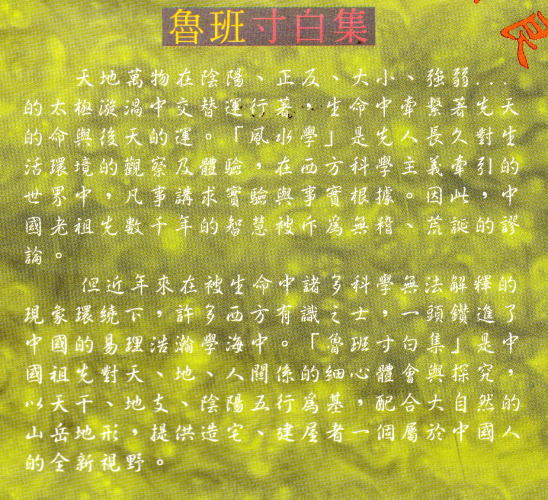 魯班寸白集
天地萬物在陰陽、正反、大小、強弱...
的太極漩渦中交替運行著,生命中牽繫著先天
的命與後天的運。「風水學」是先人長久對生
活環境的觀察及體驗,在西方科學主義牽引的
世界中,凡事講求實驗與事實根據。因此,中
國老祖先數千年的智慧被斥為無稽、荒誕的謬
論。
但近年來在被生命中諸多科學無法解釋的
現象環繞下,許多西方有識之士,一頭鑽進了
中國的易理浩瀚學海中。「魯班寸白集」是中
國祖先對天、地、人關係的細心體會與探究,
以天干、地支、陰陽五行為基,配合大自然的
山岳地形,提供造宅、建屋者一個屬於中國人
的全新視野。